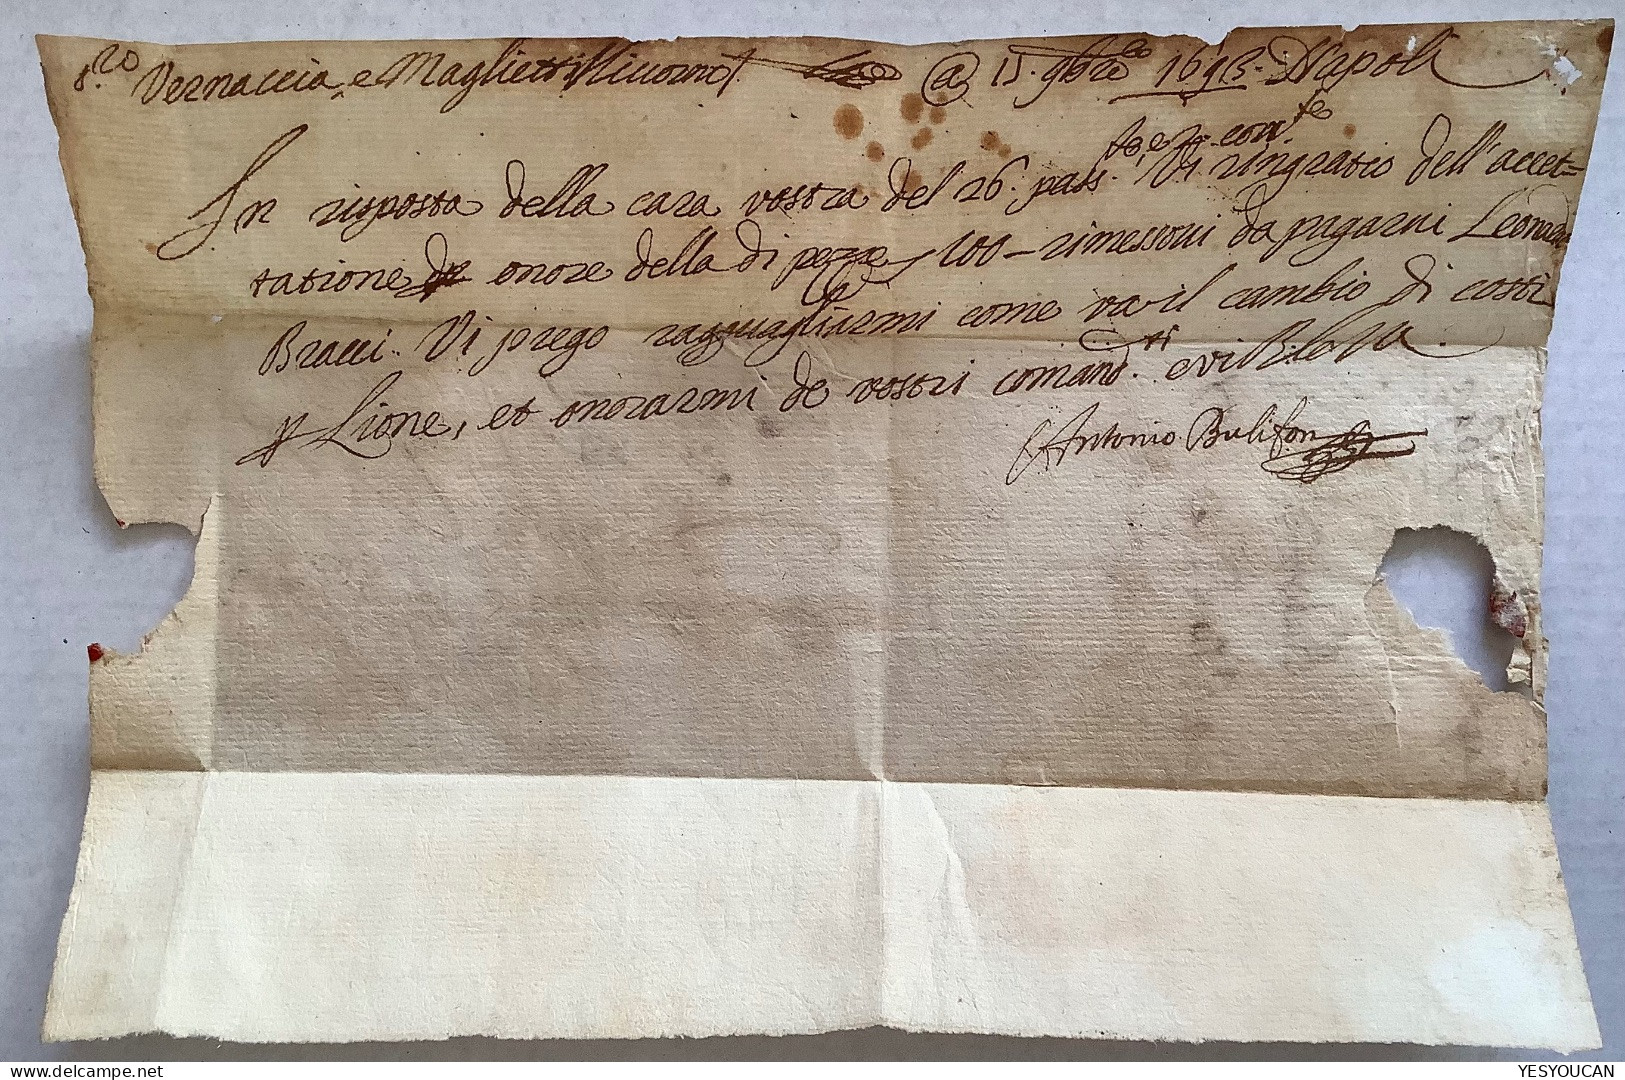 Vernaccia, e Maglietti Livorno. @ 15. 9bre 1693. Napoli
to, e ve cont.te
In risposta della cara vostra del 26. pass. Vi ringratio dell'accet=
tatione onore della di pezze 100 - rimessovi da pagarvi Leonardi
Bracci. Vi prego ragguagliarmi come va il cambio di costi
p Lione, et onorarmi de vostri comand.ti e vi
Antonio Bulifon
YESYOUCAN